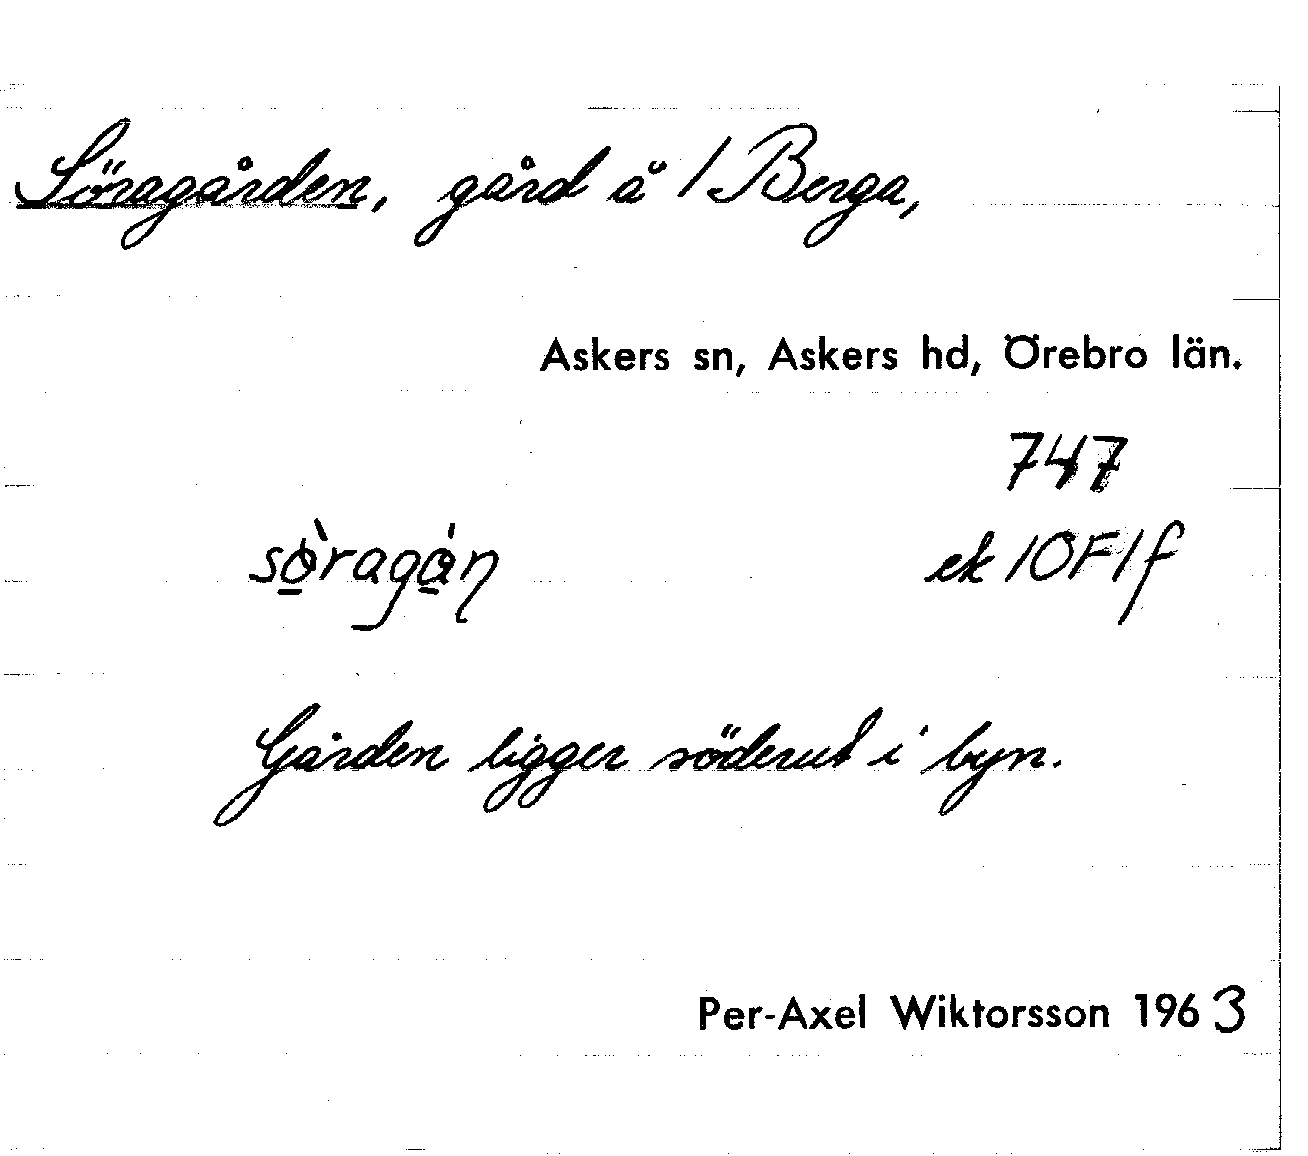 Söragården, gård å 1 Berga,
Askers sn, Askers hd, Örebro län.
747
sò̱ragȧ̱n ek 10F1f
Gården ligger söderut i byn.
Per-Axel Wiktorsson 1963